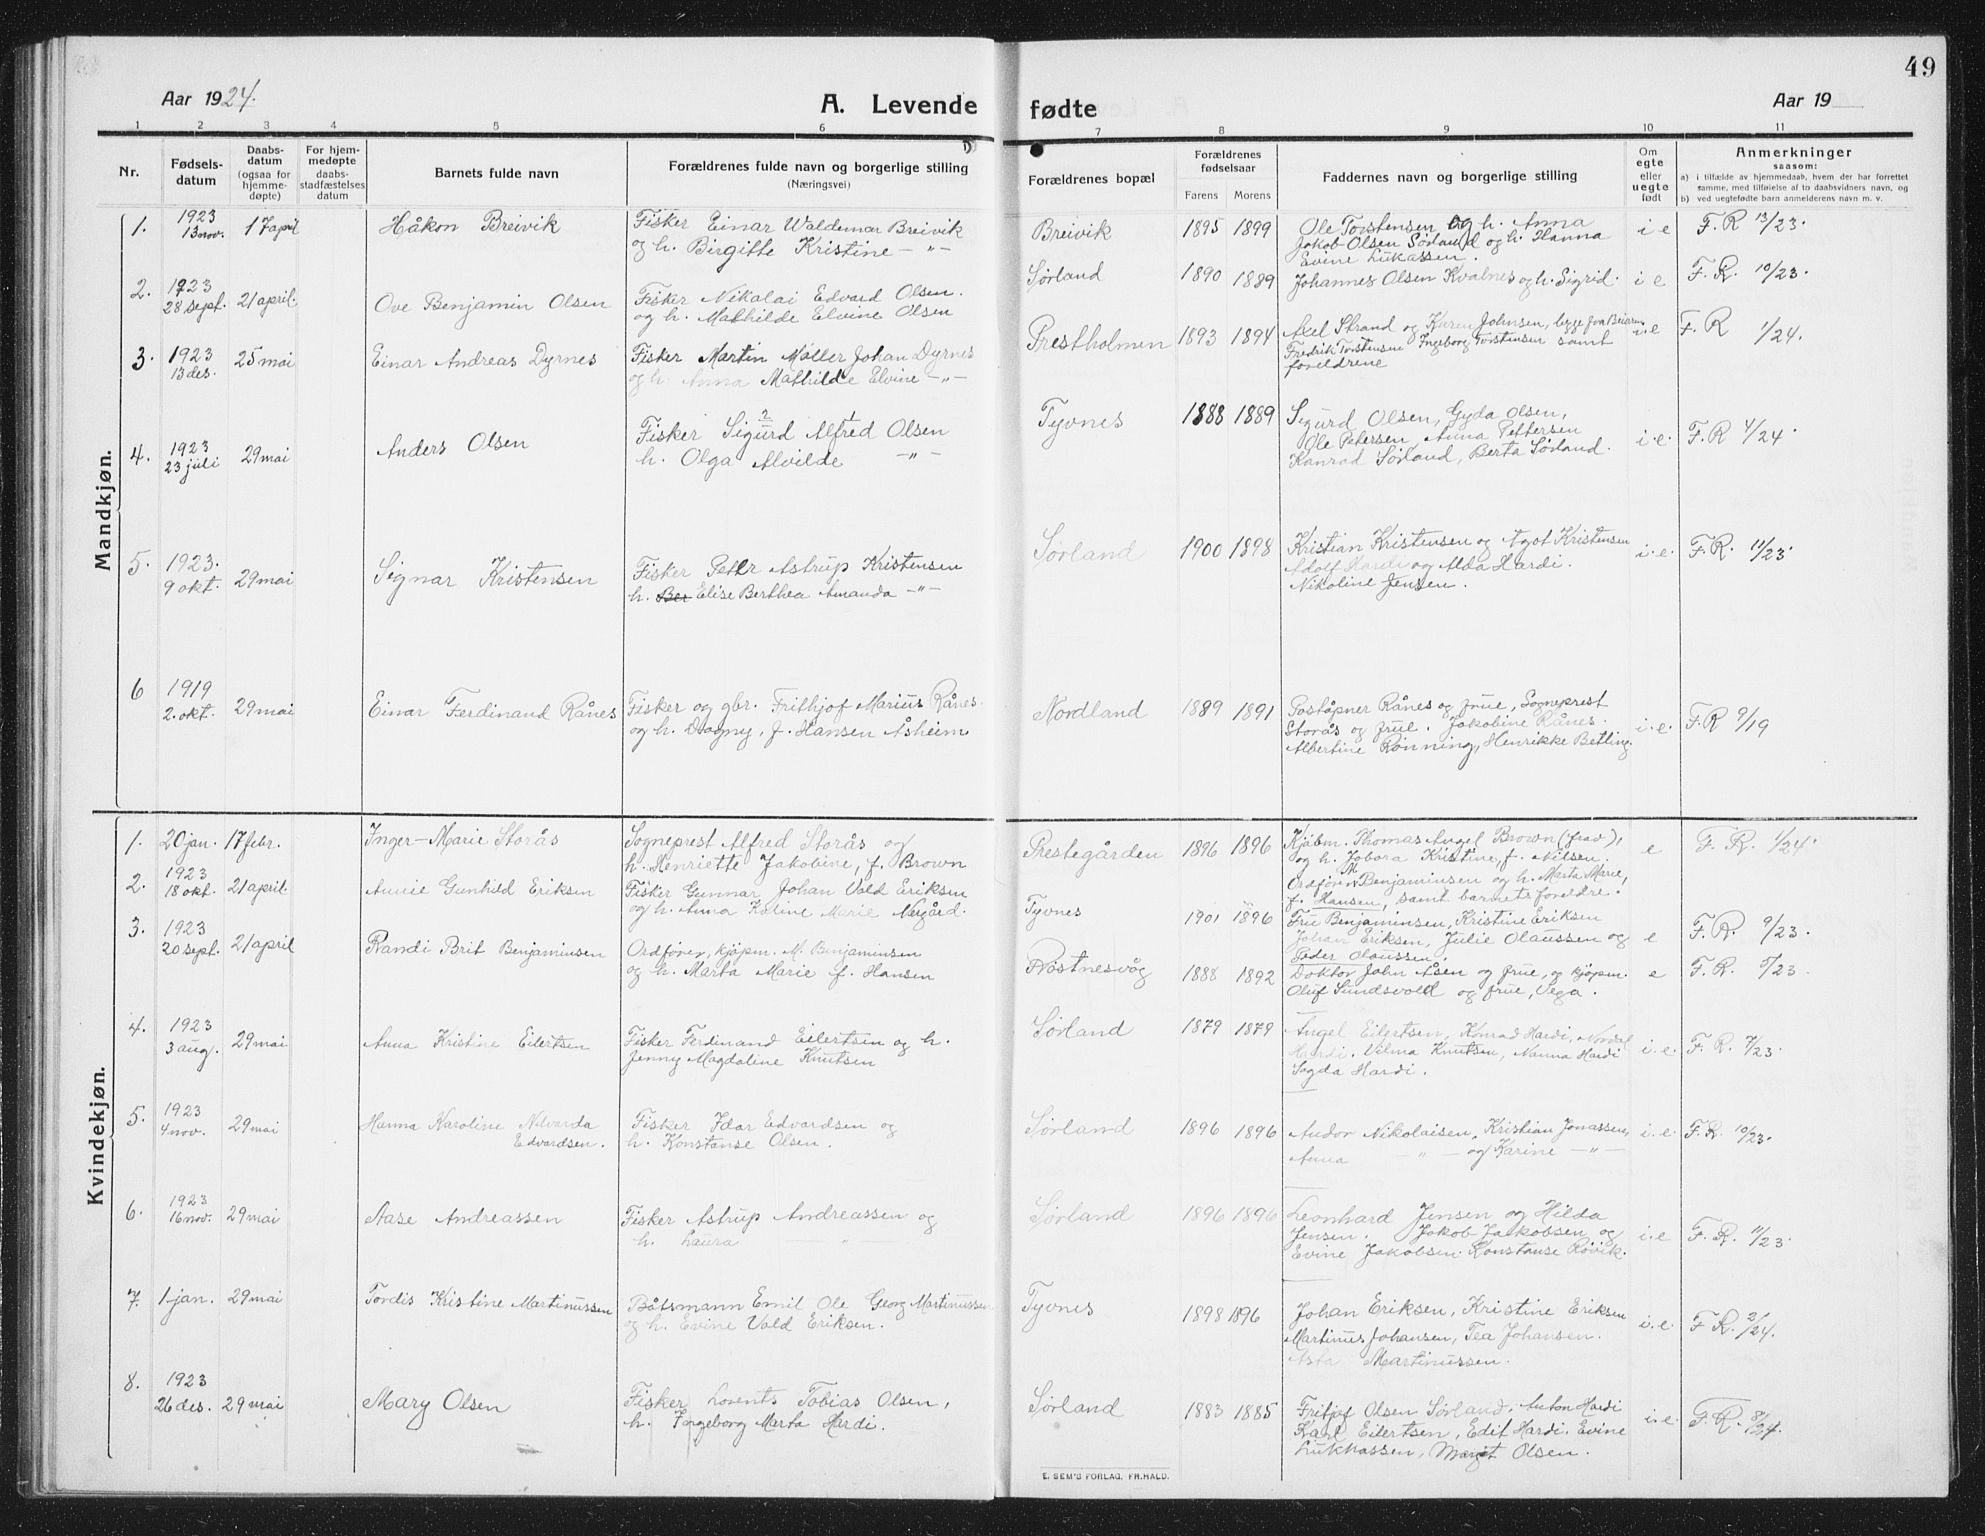 49
Aar 1924.
A. Levende
fødte
Aar 19
1 2 3 4 5 6 7 8 9 10 11
Nr.
Fødsels-
datum
Daabs-
datum
(ogsaa for
hjemme-
døpte)
For hjem-
medøpte
daabs-
stadfæstelses
datum
Barnets fulde navn
Forældrenes fulde navn og borgerlige stilling
(Næringsvei)
Forældrenes bopæl
Forældrenes
fødselsaar
Farens Morens
Faddernes navn og borgerlige stilling
Om
egte
eller
uegte
født
Anmerkninger
saasom:
a) i tilfælde av hjemmedaab, hvem der har forrettet
samme, med tilføielse af to daabsvidners navn, og
b) ved uegtefødte barn anmelderens navn m. v.
Mandkjøn.
1. 1923 13 nov. 17 april Håkon Breivik
Fisker Einar Waldemar Breivik
og h. Birgitte Kristine -"-
Breivik 1895 1899
Ole Torstensen og h. Anna
Jakob Olsen Sørland og h. Hanna
Evine Lukassen.
i e F. R 13/23.
2. 1923 28 sept. 21 april. Ove Benjamin Olsen
Fisker Nikolai Edvard Olsen.
og h. Mathilde Elvine Olsen
Sørland 1890 1889
Johannes Olsen Kvalnes og h. Sigrid.
i e F. R. 10/23.
3. 1923 13 des. 25 mai Einar Andreas Dyrnes
Fisker Martin Møller Johan Dyrnes
og h. Anna Mathilde Elvine -"-
Prestholmen 1893 1894
Axel Strand og Karen Johnsen, begge fra Beiarn,
Fredrik Torstensen Ingeborg Torstensen samt
foreldrene
i e F. R 1/24.
4. 1923 23 juli 29 mai Anders Olsen
2 1
Fisker Sigurd Alfred Olsen
h. Olga Alvilde -"-
Tyvnes 1888 1889
Sigurd Olsen, Gyda Olsen,
Ole Petersen, Anna Pettersen
Konrad Sørland, Berta Sørland.
i. e. F. R 4/24.
5. 1923. 9 okt. 29 mai Sigmar Kristensen
Fisker Petter Astrup Kristensen
h. Ber Elise Berthea Amanda -"-
Sørland 1900 1898
Kristian Kristensen og Agot Kristensen
Adolf Hardi og Alda Hardi.
Nikoline Jensen.
i. e. F. R. 11/23.
6 1919 2. okt. 29 mai Einar Ferdinand Rånes
Fisker og gbr. Frithjof Marius Rånes.
og h. Dagny, f. Hansen Åsheim
Nordland 1889 1891
Poståpner Rånes og frue, Sogneprest
Storås og frue. Jakobine Rånes.
Albertine Rønning, Henrikke Betling.
i. e. F. R 9/19
Kvindekjøn.
1. 20 jan. 17 febr. Inger-Marie Storås
Sogneprest Alfred Storås og
h. Henriette Jakobine, f. Brown
Prestegården 1896 1896
Kjøbm. Thomas Angel Brown (frav),
og h. Jobara Kristine, f. Nilsen.
Ordfører M Benjaminsen og h. Marta Marie,
f. Hansen, samt barnets foreldre.
e F. R. 1/24.
2. 1923 18 okt. 21 april. Aunie Gunhild Eriksen
Fisker Gunnar Johan Vold Eriksen
og h. Anna Karine Marie Nergård.
Tyvnes 1901 1896
Fru Benjaminsen, Kristine Eriksen
Johan Eriksen, Julie Olaussen og
Peder Olaussen.
e F. R. 9/23.
3. 1923 20 sept. 21 april Randi Brit Benjaminsen
Ordfører, kjøpm. M. Benjaminsen
og h. Marta Marie f. Hansen
Røstnesvåg 1888 1892
Doktor John Åsen og frue, og kjøpm.
Oluf Sundsvold og frue, Vega.
e F. R. 5/23.
4. 1923 3 aug. 29 mai Anna Kristine Eilertsen
Fisker Ferdinand Eilertsen og h.
Jenny Magdaline Knutsen
Sørland 1879 1879
Angel Eilertsen, Konrad Hardi, Nordal
Hardi. Vilma Knutsen, Nanna Hardi
Sogda Hardi.
i. e. F. R. 7/23.
5. 1923 4 nov. 29 mai Hanna Karoline Nilvarda
Edvardsen.
Fisker Idar Edvardsen og
h. Konstanse Olsen.
Sørland 1896 1896
Andor Nikolaisen, Kristian Jonassen,
Anna -"- og Karine -"-
i. e. F. R. 10/23.
6. 1923 16 nov. 29 mai Aase Andreassen
Fisker Astrup Andreassen og
h. Laura "
Sørland 1896 1896
Leonhard Jensen og Hilda
Jensen. Jakob Jakobsen og
Evine Jakobsen. Konstanse Røvik.
i. e F. R. 11/23.
7. 1 jan. 29 mai Tordis Kristine Martinussen
Båtsmann Emil Ole Georg Martinussen
og h. Evine Vold Eriksen.
Tyvnes 1898 1896
Johan Eriksen, Kristine Eriksen
Martinus Johansen, Tea Johansen.
Asta Martinussen.
i. e. F. R. 2/24.
8. 1923 26 des. 29 mai Mary Olsen
Fisker Lorents Tobias Olsen,
h. Ingeborg Marta Hardi.
Sørland 1883 1885
Fritjof Olsen Sørland, Anton Hardi
Karl Eilertsen, Edit Hardi. Evine
Lukkassen, Margit Olsen.
i. e. F. R. 8/24.
E. SEM'S FORLAG, FR.HALD.